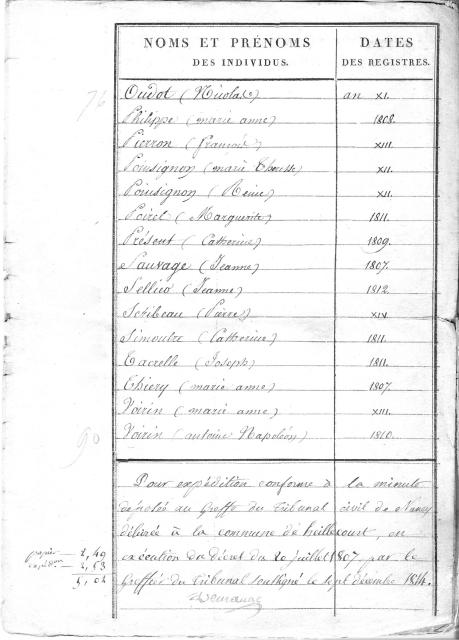 NOMS ET PRÉNOMS
DES INDIVIDUS.
DATES
DES REGISTRES.
76
Oudot (Nicolas) an XI.
Philippe (marie anne) 1808.
Pierron (francois) XIII.
Poinsignon (marie Therese) XII.
Poinsignon (Reine) XII.
Poirel (Marguerite) 1811.
Présent (Catherine) 1809.
Sauvage (Jeanne) 1807.
Sellier (Jeanne) 1812.
Scribeau (Pierre) XIV
Simoutre (Catherine) 1811.
Tacrelle (Joseph) 1811.
Thiery (marie anne) 1807.
Voirin (marie anne) XIII.
90 Voirin (antoine Napoléon) 1810.
Pour expédition conforme à la minute
déposée au Greffe du Tribunal civil de Nancy
délivrée à la commune de heillecourt, en
papier — 2,49 exécution du décret du 20 juillet 1807 par le
expédition — 2,53 Greffier du Tribunal soussigné le sept décembre 1814.
5,02